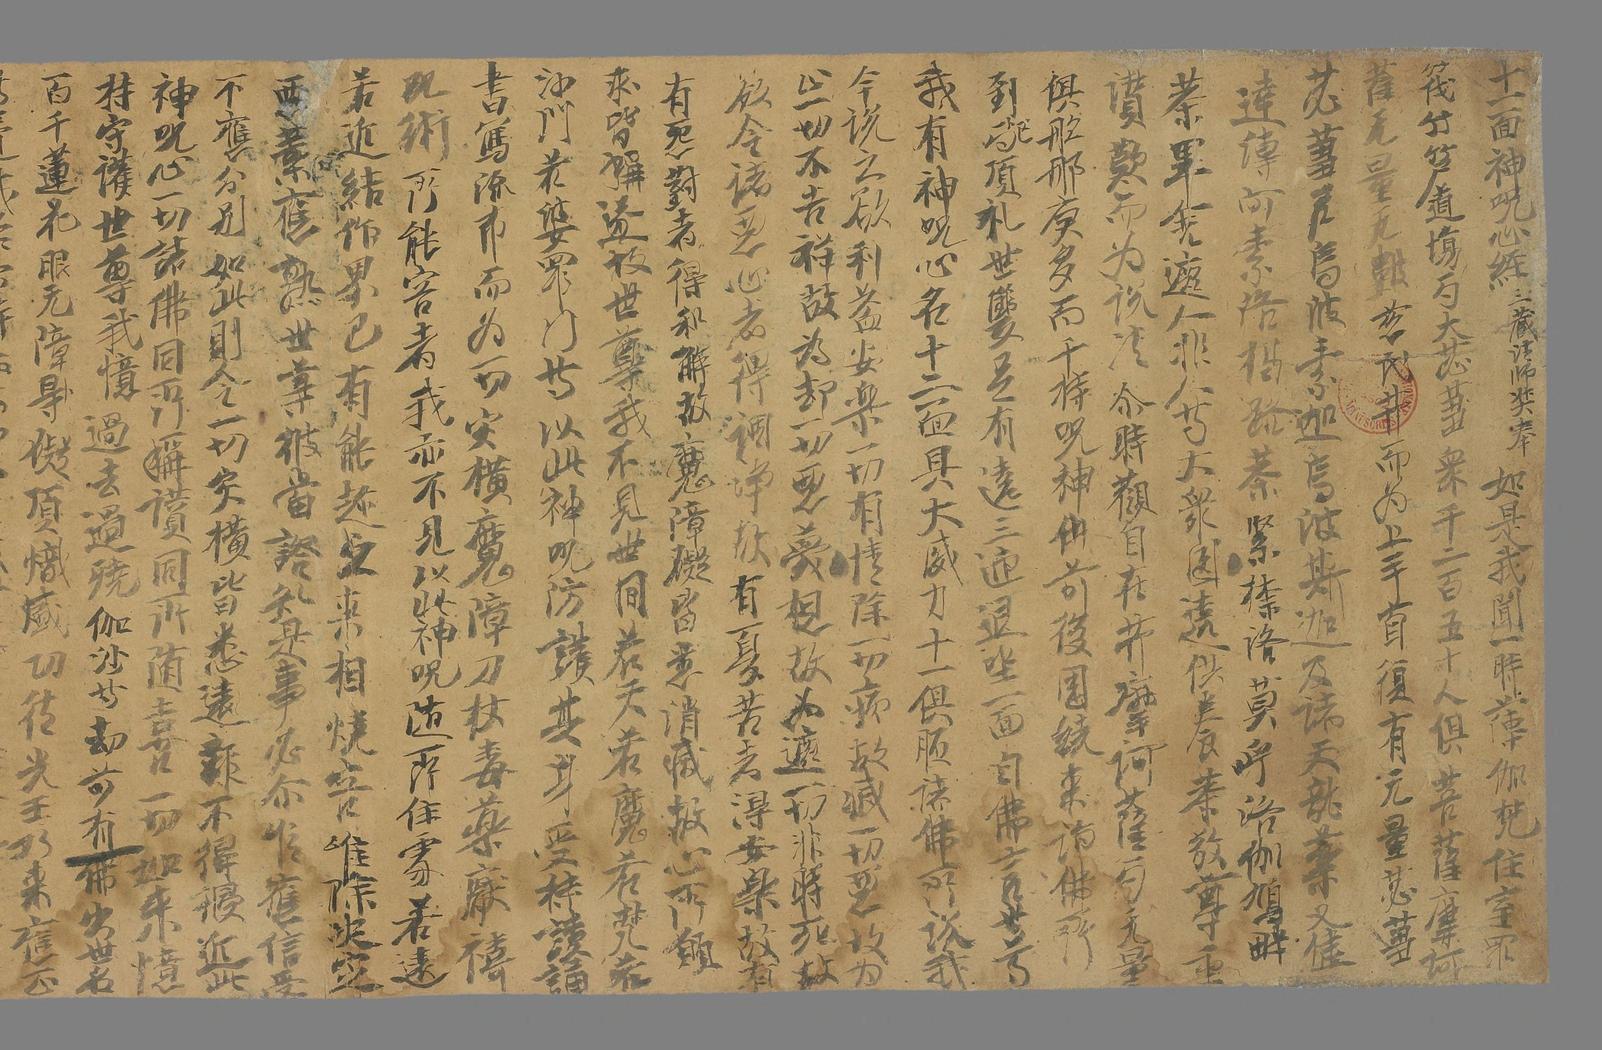 十一面神呪心経 三藏法師奘奉 如是我聞一時薄伽梵住室羅
筏竹笋道塲与大苾蒭衆千二百五十人俱菩薩摩訶
薩无量无數慈氏而为上首復有无量苾蒭
苾蒭尼鄔波索迦鄔波斯迦及諸天龍藥叉健
達縛阿素洛揭路荼緊捺洛莫呼洛伽鳩畔
荼畢舍遮人非人等大衆圍遶供養恭敬尊重
讃歎而为說法尒時觀自在菩薩摩訶薩与无量
俱胝那庾多百千持呪神仙前後圍繞来詣佛所
到已頂礼世尊雙足右遶三迊退坐一面白佛言世尊
我有神呪心名十一面具大威力十一俱胝諸佛所說我
今說之欲利益安樂一切有情除一切病故滅一切惡故为
止一切不吉祥故为却一切惡夢想故为遮一切非時死故
欲令諸惡心者得調淨故有憂苦者得安樂故有
有怨對者得和解故魔障礙皆悉消滅故心所願
求皆稱遂故世尊我不見世間若天若魔若梵若
沙門若婆羅門等以此神呪防護其身受持讀誦
書寫流布而为一切灾横魔障刀杖毒藥厭禱
呪術所能害者我亦不見以此神呪随所住處若遠
若近結作界已有能越之来相嬈害唯除决定
悪業應熟世尊彼當諮知是事必尒唯應信受
不應分別如此則令一切灾横皆悉遠離不得侵近此
神呪心一切諸佛同所稱讃同所随喜一切如来憶
持守護世尊我憶過去過殑伽沙等劫前有佛出世名
百千蓮花眼无障㝵礙頂熾盛功德光王如来應正